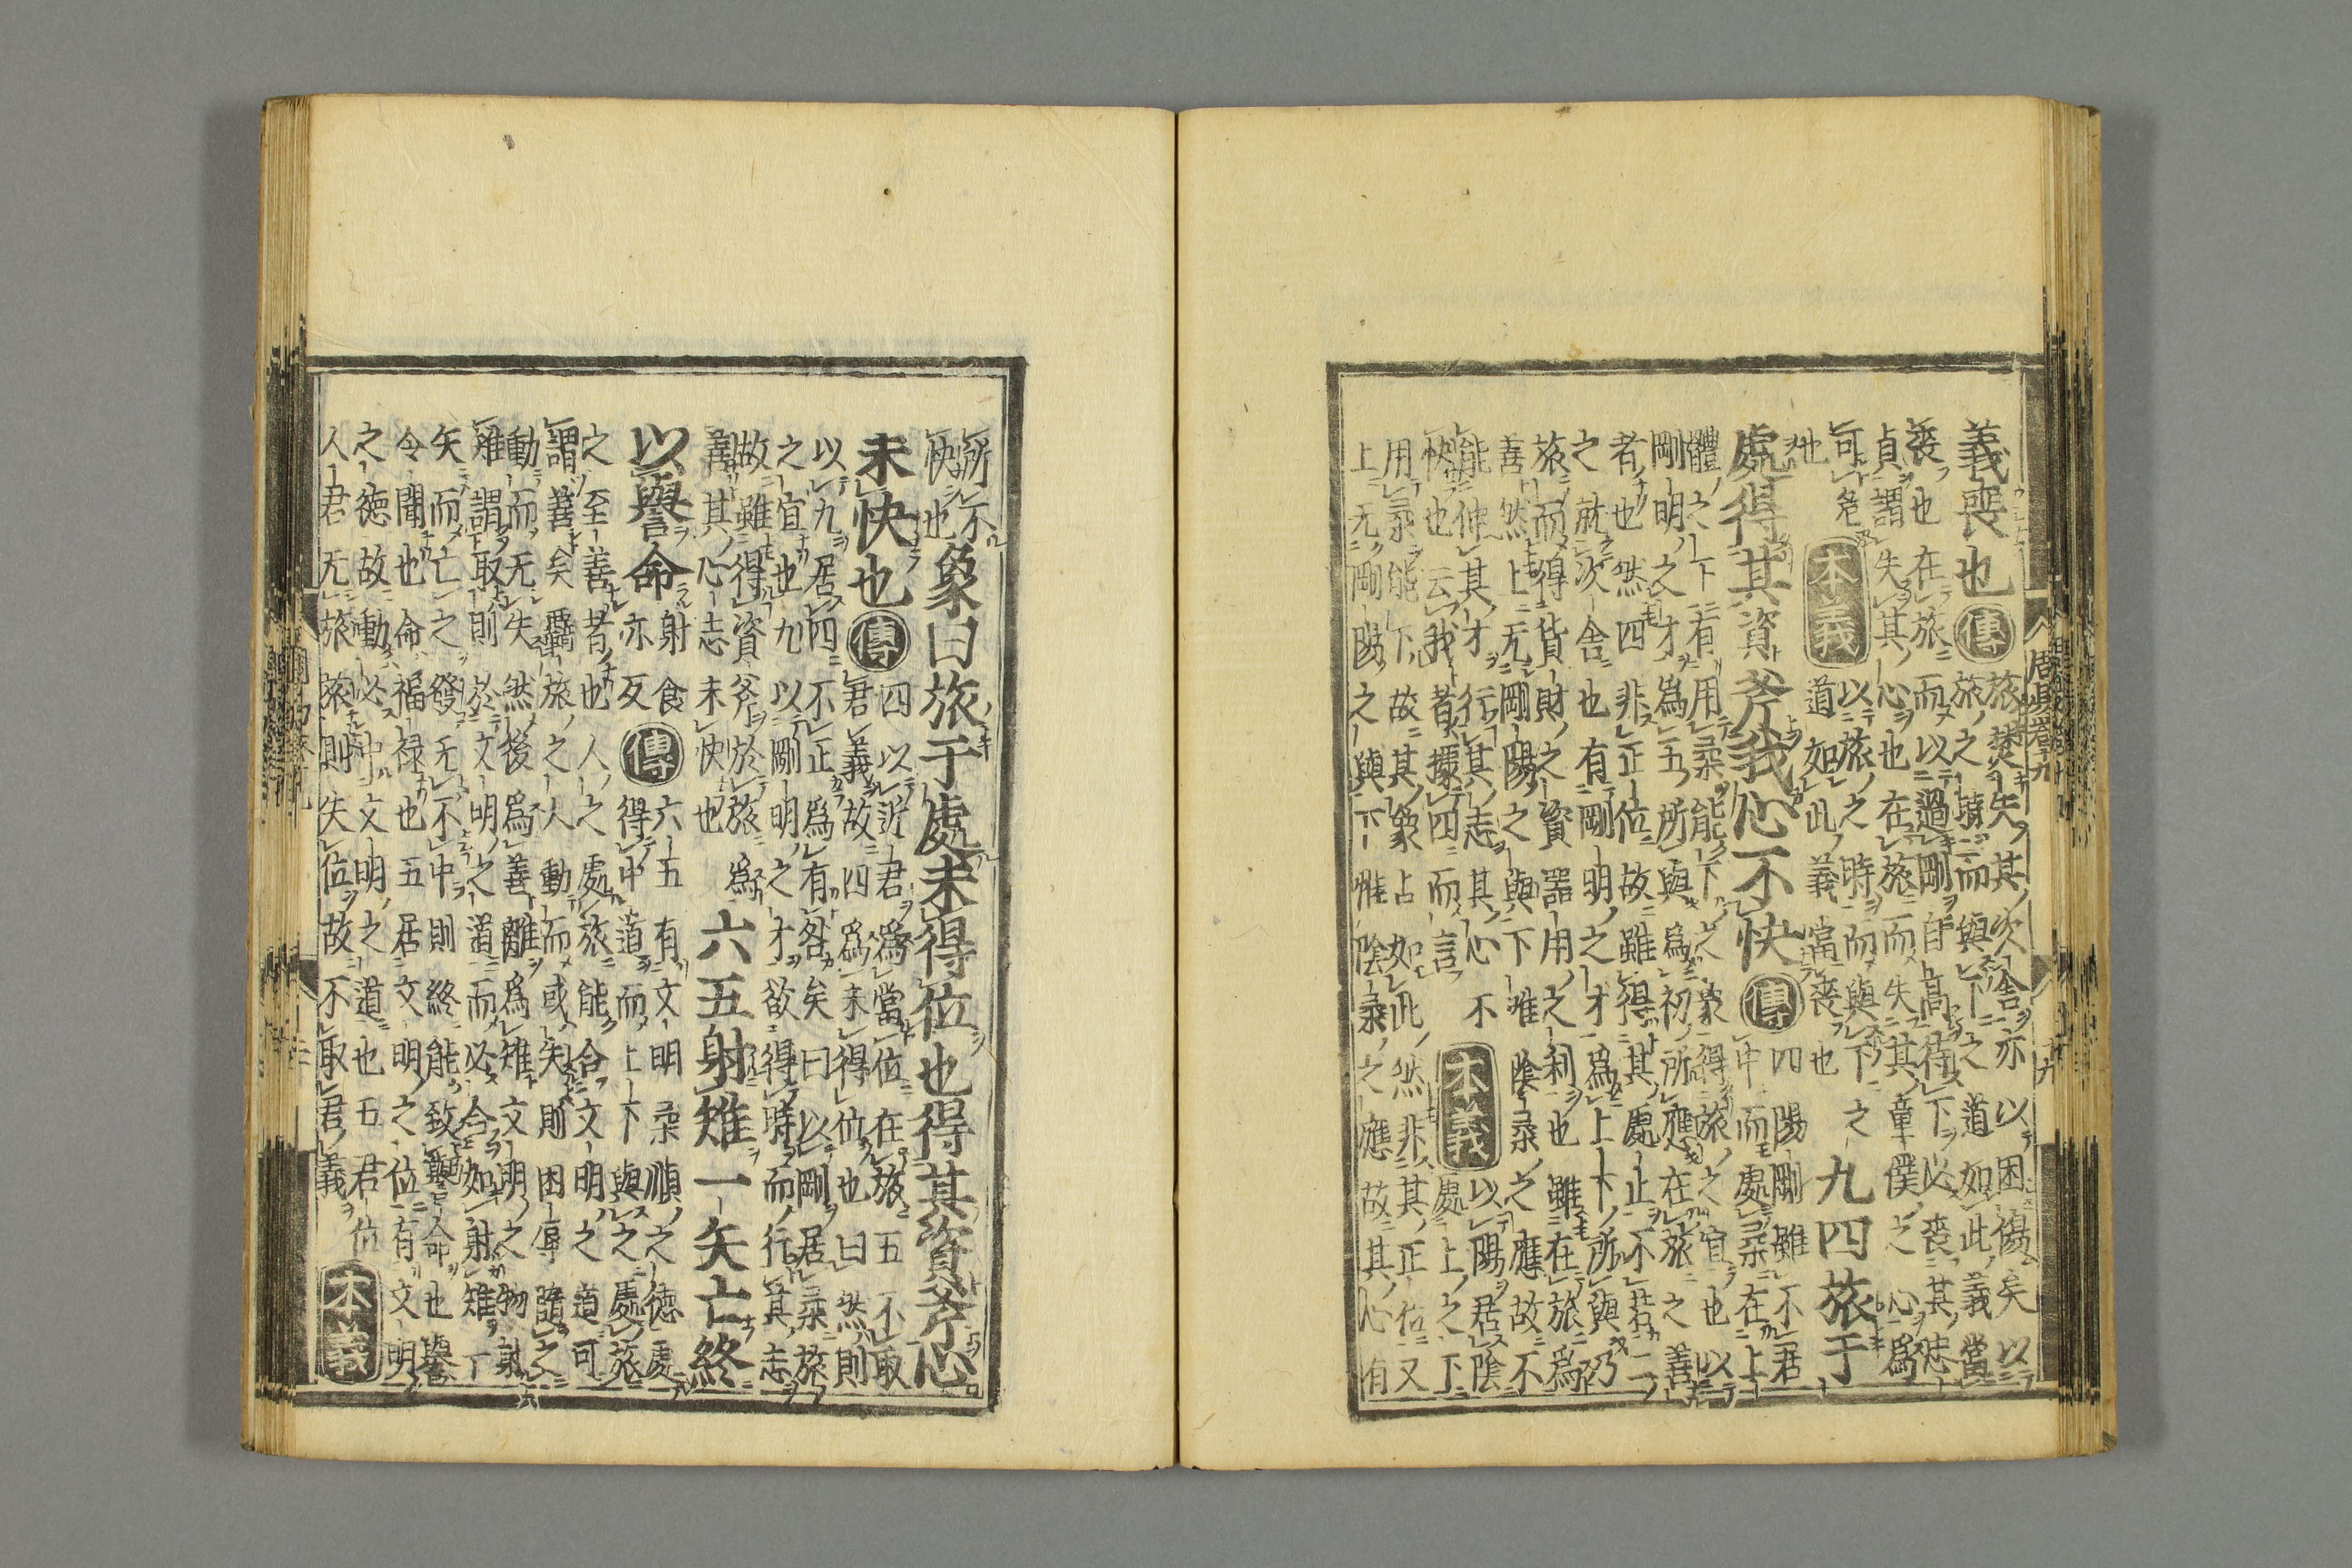 義喪也傳旅焚失其次舍亦以困傷矣以
旅之時而與下之道如此義當
喪也在旅而以過剛自高待下必喪其忠
貞謂失其心也在旅而失其童僕之心爲
可危本義以旅之時而與下之
也道如此義當喪也九四旅于
處得其資斧我心不快傳四陽剛雖不居
中而處柔在上
體之下有用柔能下之象得旅之宜也以
剛明之才爲五所與爲初所應在旅之善
者也然四非正位故雖得其處止不若二
之就次舍也有剛明之才爲上下所與乃
旅而得貨財之資器用之利也雖在旅爲
善然上无剛陽之與下唯陰柔之應故不
能伸其才行其志其心不
快也云我者據四而言本義以陽居陰
處上之下
用柔能下故其象占如此然非其正位又
上无剛陽之與下惟陰柔之應故其心有
所不
快也象曰旅于處未得位也得其資斧心
未快也傳四以近君爲當位在旅五不取
君義故四爲未得位也曰然則
以九居四不正爲有咎矣曰以剛居柔旅
之宜也九以剛明之才欲得時而行其志
故雖得資斧於旅爲
善其心志未快也六五射雉一矢亡終
以譽命射食亦反傳六五有文明柔順之德處
得中道而上下與之處旅
之至善者也人之處旅能合文明之道可
謂善矣羈旅之人動而或失則困辱隨之
動而无失然後爲善離爲雉文明之物射
雉謂取則於文明之道而必合如射雉一
矢而亡之發无不中則終能致譽命也譽
令聞也命福祿也五居文明之位有文明
之德故動必中文明之道也五君位
人君无旅旅則失位故不取君義本義